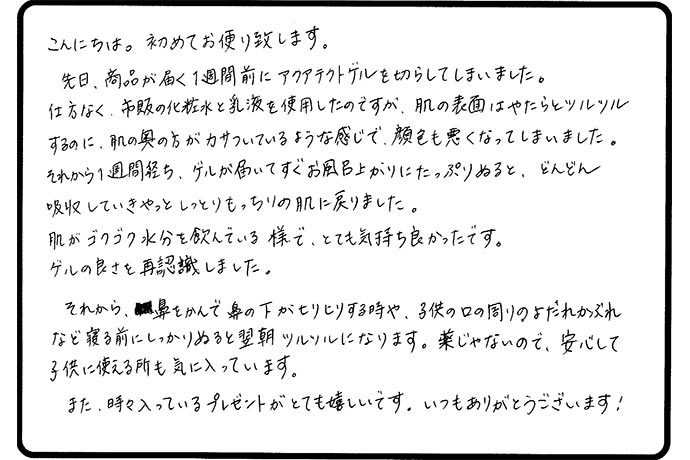 こんにちは。初めてお便り致します。
先日、商品が届く1週間前にアクアテクトゲルを切らしてしまいました。
仕方なく、市販の化粧水と乳液を使用したのですが、肌の表面はやたらとツルツル
するのに、肌の奥の方がカサついているような感じで、顔色も悪くなってしまいました。
それから1週間経ち、ゲルが届いてすぐお風呂上がりにたっぷりぬると、どんどん
吸収していきやっとしっとりもっちりの肌に戻りました。
肌がゴクゴク水分を飲んでいる様で、とても気持ち良かったです。
ゲルの良さを再認識しました。
それから、鼻をかんで鼻の下がヒリヒリする時や、子供の口の周りのよだれかぶれ
など寝る前にしっかりぬると翌朝ツルツルになります。薬じゃないので、安心して
子供に使える所も気に入っています。
また、時々入っているプレゼントがとても嬉しいです。いつもありがとうございます!